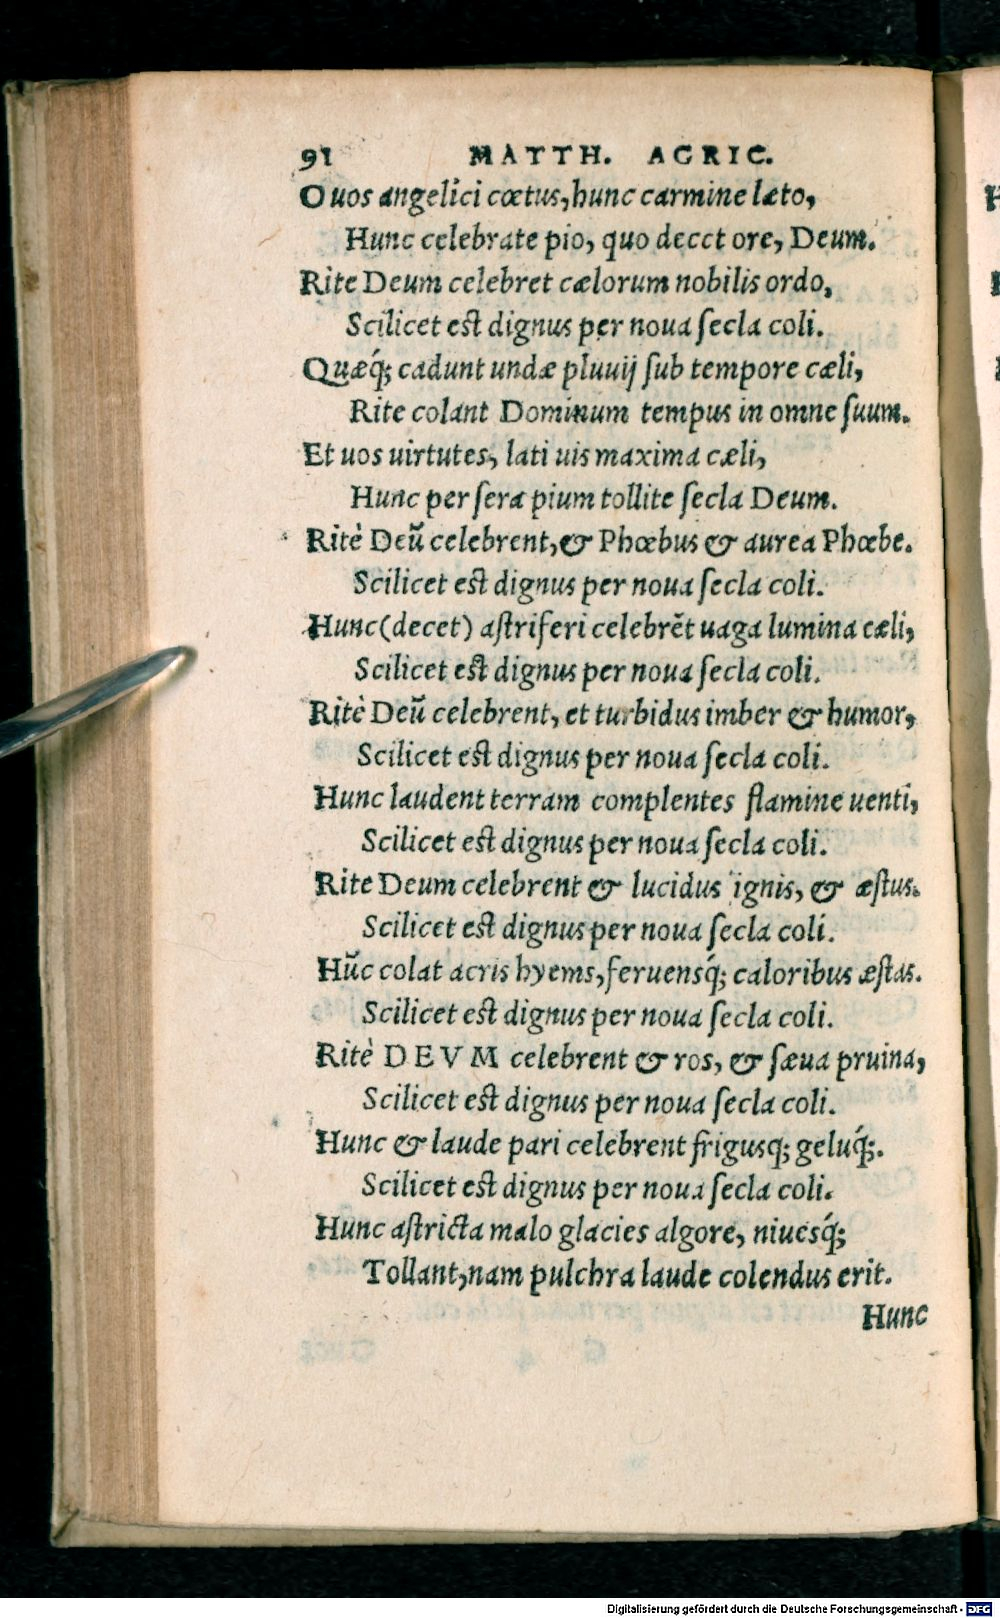 91 MATTH. AGRIC.
O uos angelici cœtus, hunc carmine læto,
Hunc celebrate pio, quo decet ore, Deum.
Rite Deum celebret cælorum nobilis ordo,
Scilicet est dignus per noua ſecla coli.
Quæq́; cadunt undæ pluuij ſub tempore cæli,
Rite colant Dominum tempus in omne ſuum.
Et uos uirtutes, lati uis maxima cæli,
Hunc per ſera pium tollite ſecla Deum.
Ritè Deũ celebrent, & Phœbus & aurea Phœbe.
Scilicet est dignus per noua ſecla coli.
Hunc (decet) aſtriferi celebrẽt uaga lumina cæli,
Scilicet est dignus per noua ſecla coli.
Ritè Deũ celebrent, et turbidus imber & humor,
Scilicet est dignus per noua ſecla coli.
Hunc laudent terram complentes flamine uenti,
Scilicet est dignus per noua ſecla coli.
Rite Deum celebrent & lucidus ignis, & æſtus.
Scilicet est dignus per noua ſecla coli.
Hũc colat acris hyems, feruensq́; caloribus æſtas.
Scilicet est dignus per noua ſecla coli.
Ritè DEVM celebrent & ros, & ſæua pruina,
Scilicet est dignus per noua ſecla coli.
Hunc & laude pari celebrent frigusq; geluq́;.
Scilicet est dignus per noua ſecla coli.
Hunc aſtricta malo glacies algore, niuesq́;
Tollant, nam pulchra laude colendus erit.
Hunc
Digitalisierung gefördert durch die Deutsche Forschungsgemeinschaft - DFG